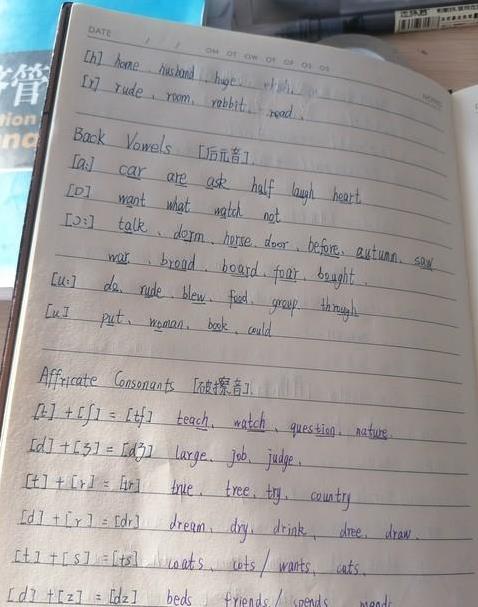 DATE / /
MO TU WE TH FR SA SU
[h] home, husband, huge,
[r] rude, room, rabbit, read.
Back Vowels [后元音]
[a:] car are ask half laugh heart
[ɒ] want what watch not
[ɔ:] talk, dorm, horse, door, before, autumn, saw
war, broad, board, four, bought.
[u:] do, rude, blew, food, group, through
[u] put, woman, book, could
Affricate Consonants [破擦音]
[t] + [ʃ] = [tʃ] teach, watch, question, nature.
[d] + [ʒ] = [dʒ] large, job, judge.
[t] + [r] = [tr] true, tree, try, country
[d] + [r] = [dr] dream, dry, drink, dree, draw.
[t] + [s] = [ts] coats, cots / wants, cats.
[d] + [z] = [dz] beds friends / spends